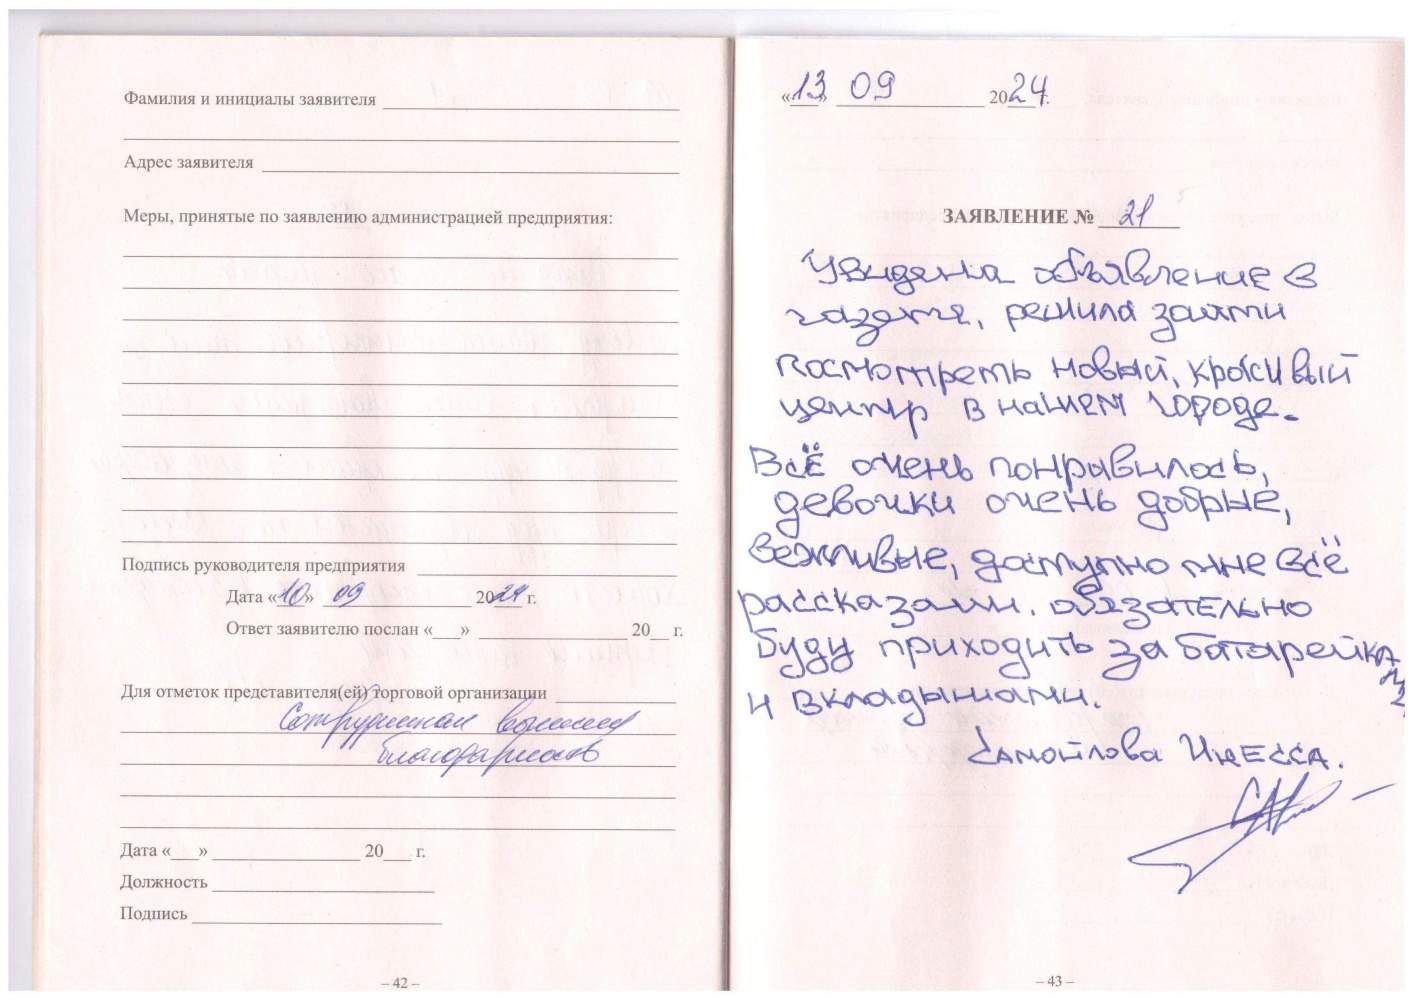 Фамилия и инициалы заявителя
Адрес заявителя
Меры, принятые по заявлению администрацией предприятия:
Подпись руководителя предприятия
Дата «10» 09 2024 г.
Ответ заявителю послан «___» ____________ 20__ г.
Для отметок представителя(ей) торговой организации
Сотрудникам вынесена
благодарность
Дата «___» ____________ 20___ г.
Должность
Подпись
– 42 –
«13» 09 2024 г.
ЗАЯВЛЕНИЕ № 21
Увидела объявление в
газете, решила зайти
посмотреть новый, красивый
центр в нашем городе.
Всё очень понравилось,
девочки очень добрые,
вежливые, доступно мне всё
рассказали. обязательно
буду приходить за батарейками
и вкладышами.
Самойлова Инесса.
– 43 –